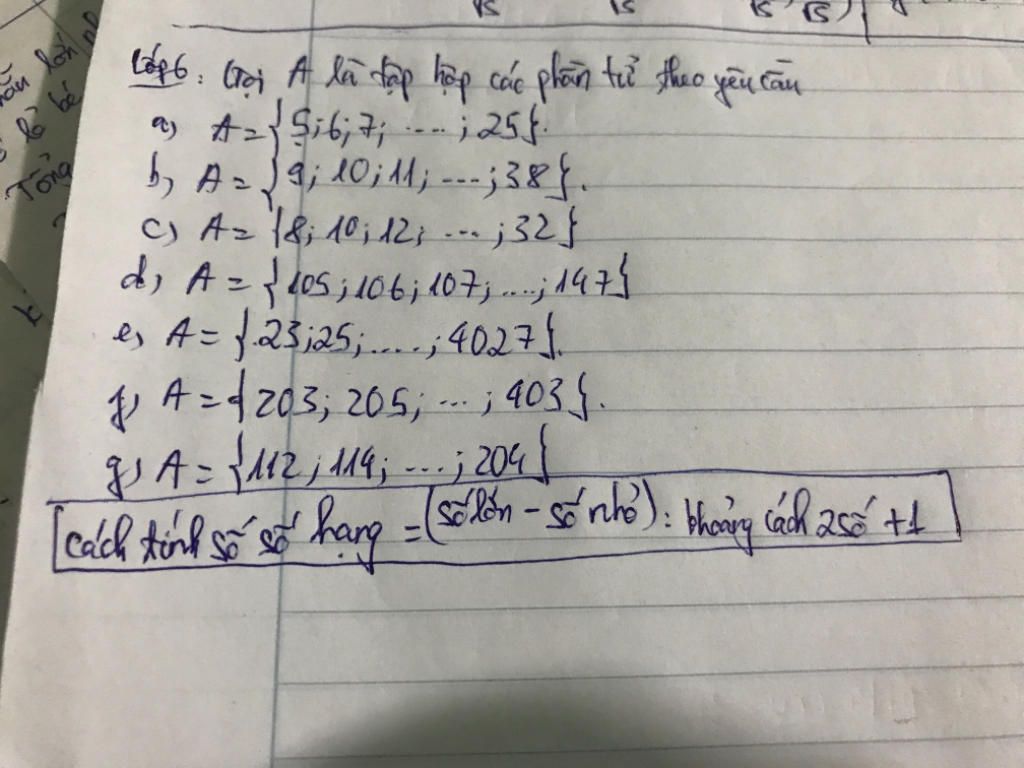 √5 √5 √5 √5
Lớp 6: Gọi A là tập hợp các phần tử theo yêu cầu
a) A = {5; 6; 7; ....; 25}.
b) A = {9; 10; 11; ...; 38}.
c) A = {8; 10; 12; ...; 32}
d) A = {105; 106; 107; ...; 147}
e) A = {23; 25; ....; 4027}.
f) A = {203; 205; ...; 403}.
g) A = {112; 114; ...; 204}
Cách tính số số hạng = (số lớn - số nhỏ) : khoảng cách 2 số + 1
lớn
bé
Tổng